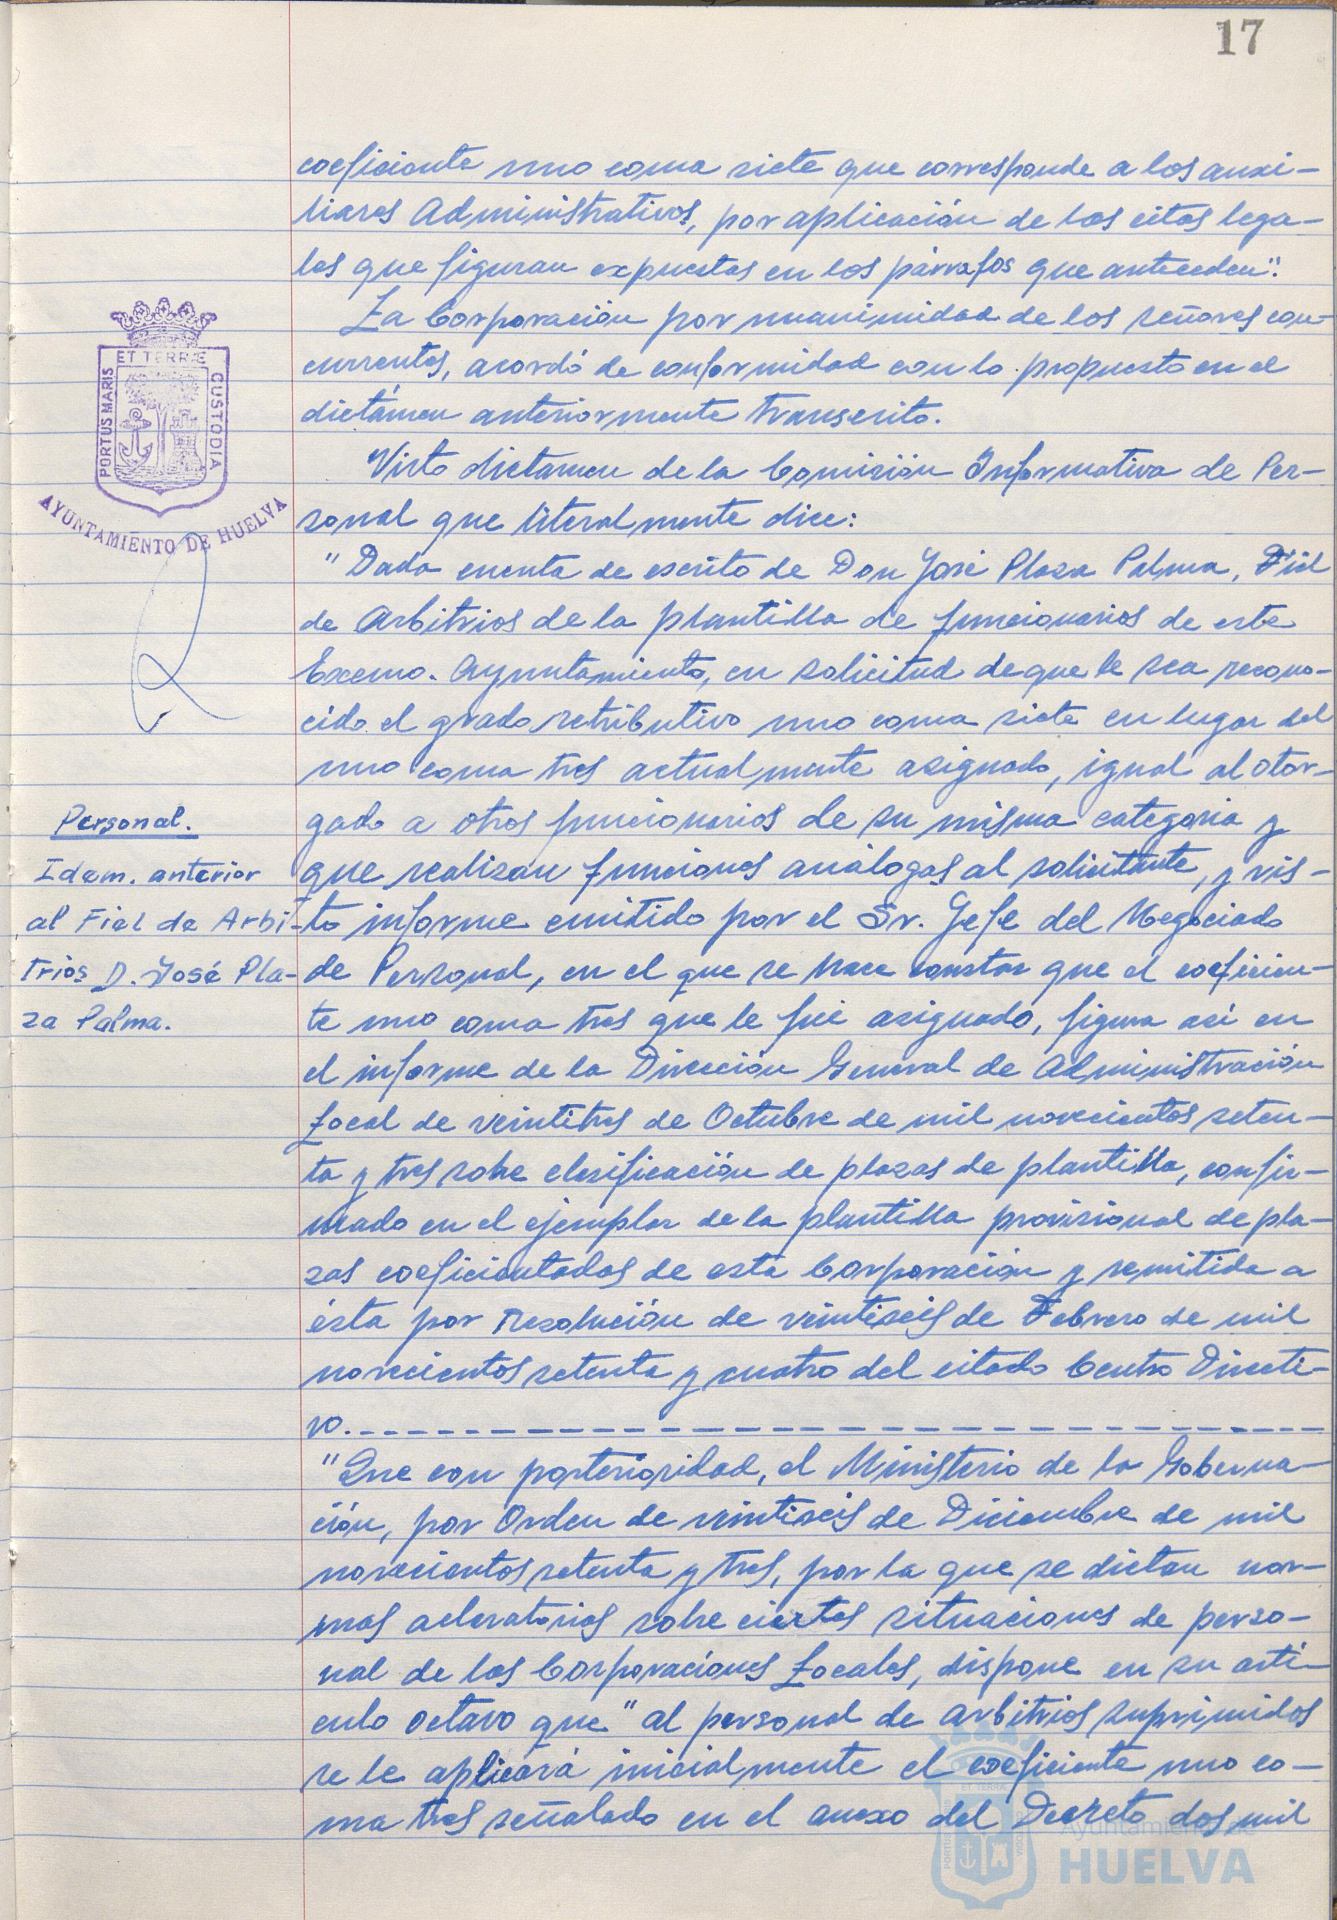 17
coeficiente uno coma siete que corresponde a los auxi-
liares Administrativos, por aplicación de las citas lega-
les que figuran expuestas en los párrafos que anteceden".
La Corporación por unanimidad de los señores con-
currentes, acordó de conformidad con lo propuesto en el
dictámen anteriormente transcrito.
Visto dictamen de la Comisión Informativa de Per-
sonal que literalmente dice:
"Dada cuenta de escrito de Don José Plaza Palma, Fiel
de Arbitrios de la plantilla de funcionarios de este
Excmo. Ayuntamiento, en solicitud de que le sea recono-
cido el grado retributivo uno coma siete en lugar del
uno coma tres actualmente asignado, igual al otor-
gado a otros funcionarios de su misma categoria y
que realizan funciones análogas al solicitante, y vis-
to informe emitido por el Sr. Jefe del Negociado
de Personal, en el que se hace constar que el coeficien-
te uno coma tres que le fué asignado, figura así en
el informe de la Dirección General de Administración
Local de veintitres de Octubre de mil novecientos seten-
ta y tres sobre clasificación de plazas de plantilla, confir-
mado en el ejemplar de la plantilla provisional de pla-
zas coeficientadas de esta Corporación y remitida a
ésta por Resolución de veintiseis de Febrero de mil
novecientos setenta y cuatro del citado Centro Directi-
vo.
"Que con posterioridad, el Ministerio de la Goberna-
ción, por Orden de veintiseis de Diciembre de mil
novecientos setenta y tres, por la que se dictan nor-
mas aclaratorias sobre ciertas situaciones de perso-
nal de las Corporaciones Locales, dispone en su artí-
culo octavo que "al personal de arbitrios suprimidos
se le aplicará inicialmente el coeficiente uno co-
ma tres señalado en el anexo del Decreto dos mil
ET TERRÆ
PORTUS MARIS
CUSTODIA
AYUNTAMIENTO DE HUELVA
Personal.
Idem. anterior
al Fiel de Arbi-
trios D. José Pla-
za Palma.
Ayuntamiento de
HUELVA